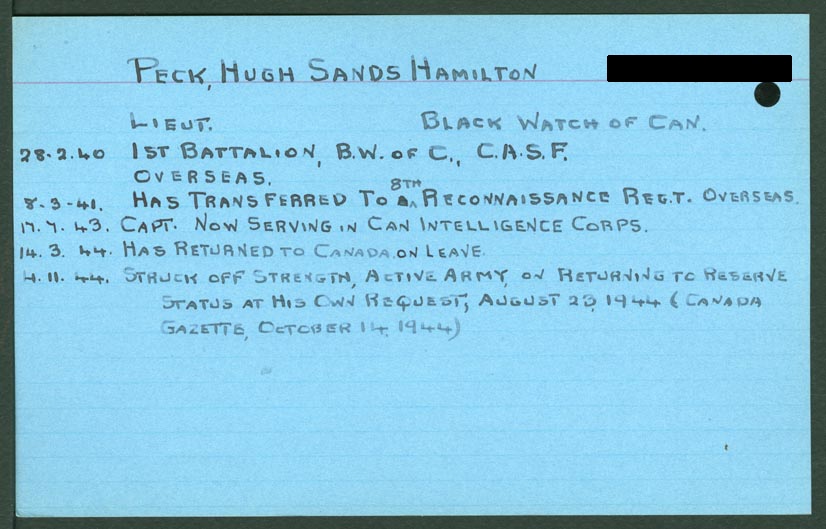 PECK, HUGH SANDS HAMILTON
LIEUT. BLACK WATCH OF CAN.
28.2.40 1ST BATTALION, B.W. OF C., C.A.S.F.
OVERSEAS.
8-3-41. HAS TRANSFERRED TO 8TH RECONNAISSANCE REGT. OVERSEAS.
17.7.43. CAPT. NOW SERVING IN CAN INTELLIGENCE CORPS.
14.3.44. HAS RETURNED TO CANADA ON LEAVE.
4.11.44. STRUCK OFF STRENGTH, ACTIVE ARMY, ON RETURNING TO RESERVE
STATUS AT HIS OWN REQUEST, AUGUST 23, 1944 (CANADA
GAZETTE, OCTOBER 14, 1944)